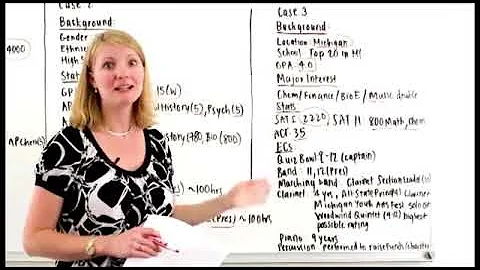 4000
AP Chem(5)
Case 2
Background:
Gender
Ethnic
High S
Stat
GP 15(W)
A History(5), Psych(5)
History(780, Bio (800)
) ~100hrs
(Pres) ~ 100hrs
Case 3
Background:
Location Michigan
School Top 20 in MI
GPA 4.0
Major Interest
Chem/Finance/BioE/Music double
Stats
SAT I 2220, SAT II 800 Math, Chem
ACT 35
ECs
Quiz Bowl 9-12 (captain)
Band: 11, 12 (Pres)
Marching band Clarinet Section Leader
Clarinet 4 yrs, All-State Principal Clarinet
Michigan Youth Arts Fest
Woodwind Quintet (9-12) highest
possible rating
Piano 9 years
Percussion performed to raise funds